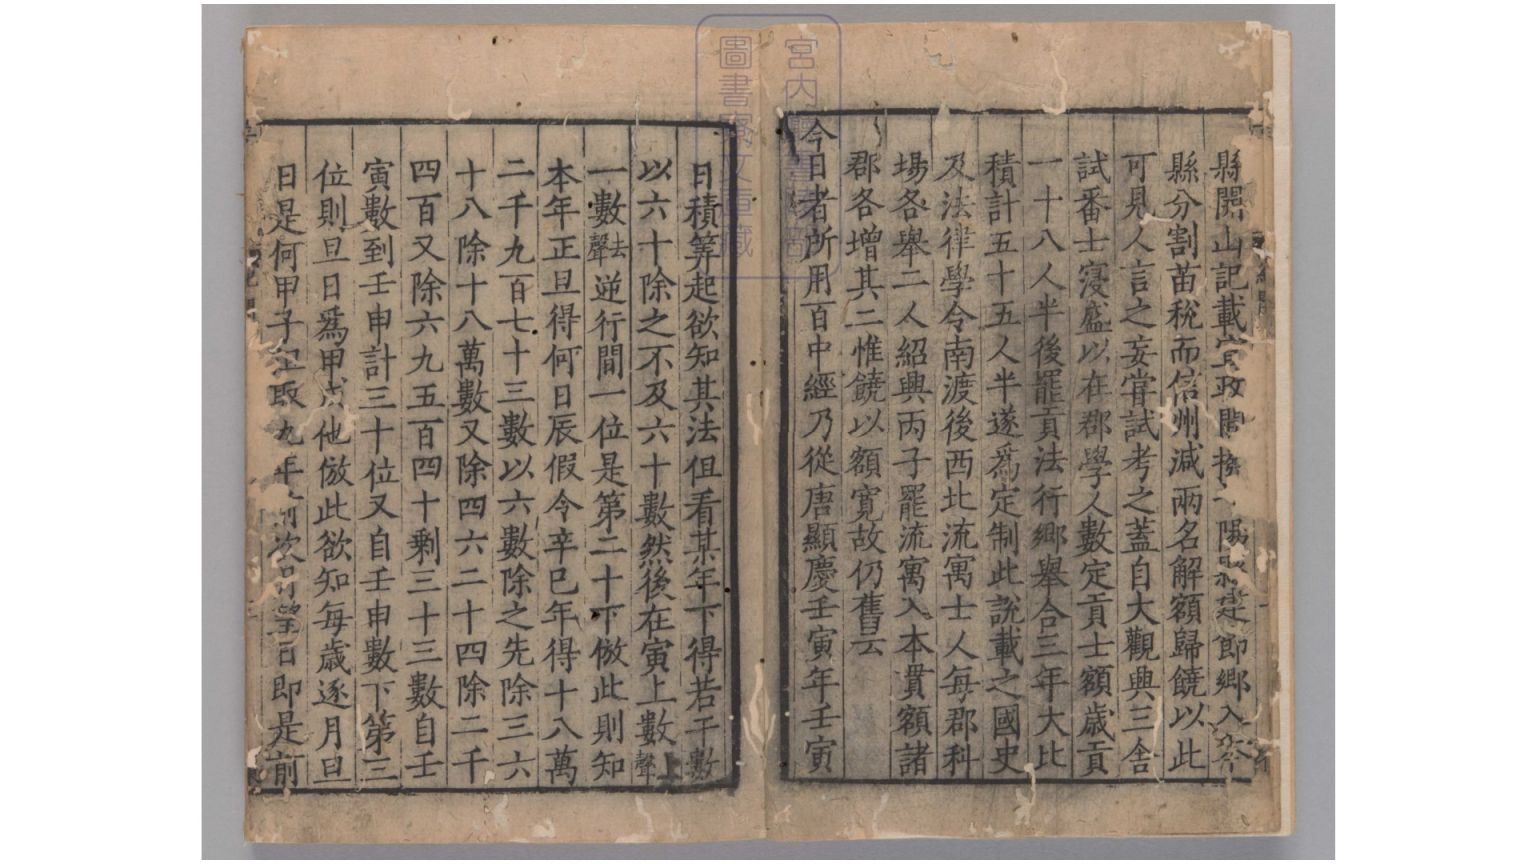 縣開山記載宣政間撰陽即鄉人
縣分割苗稅而信州減兩名解額歸饒以此
可見人言之妄嘗試考之蓋自大觀興三舍
試番士寖盛以在郡學人數定貢士額歲貢
一十八人半後罷貢法行鄉舉合三年大比
積計五十五人半遂爲定制此說載之國史
及法律學令南渡後西北流寓士人每郡科
場各舉二人紹興丙子罷流寓入本貫額諸
郡各增其二惟饒以額寬故仍舊云
今日者所用百中經乃從唐顯慶壬寅年壬寅
日積筭起欲知其法但看某年下得若干數
以六十除之不及六十數然後在寅上數上聲
一數去聲逆行間一位是第二十下倣此則知
本年正旦得何日辰假令辛巳年得十八萬
二千九百七十三數以六數除之先除三六
十八除十八萬數又除四六二十四除二千
四百又除六九五百四十剩三十三數自壬
寅數到壬申計三十位又自壬申數下第三
位則旦日爲甲戌他倣此欲知每歲逐月旦
日是何甲子但取九年前次月望日即是前
宮内廳書陵部
圖書寮文庫藏